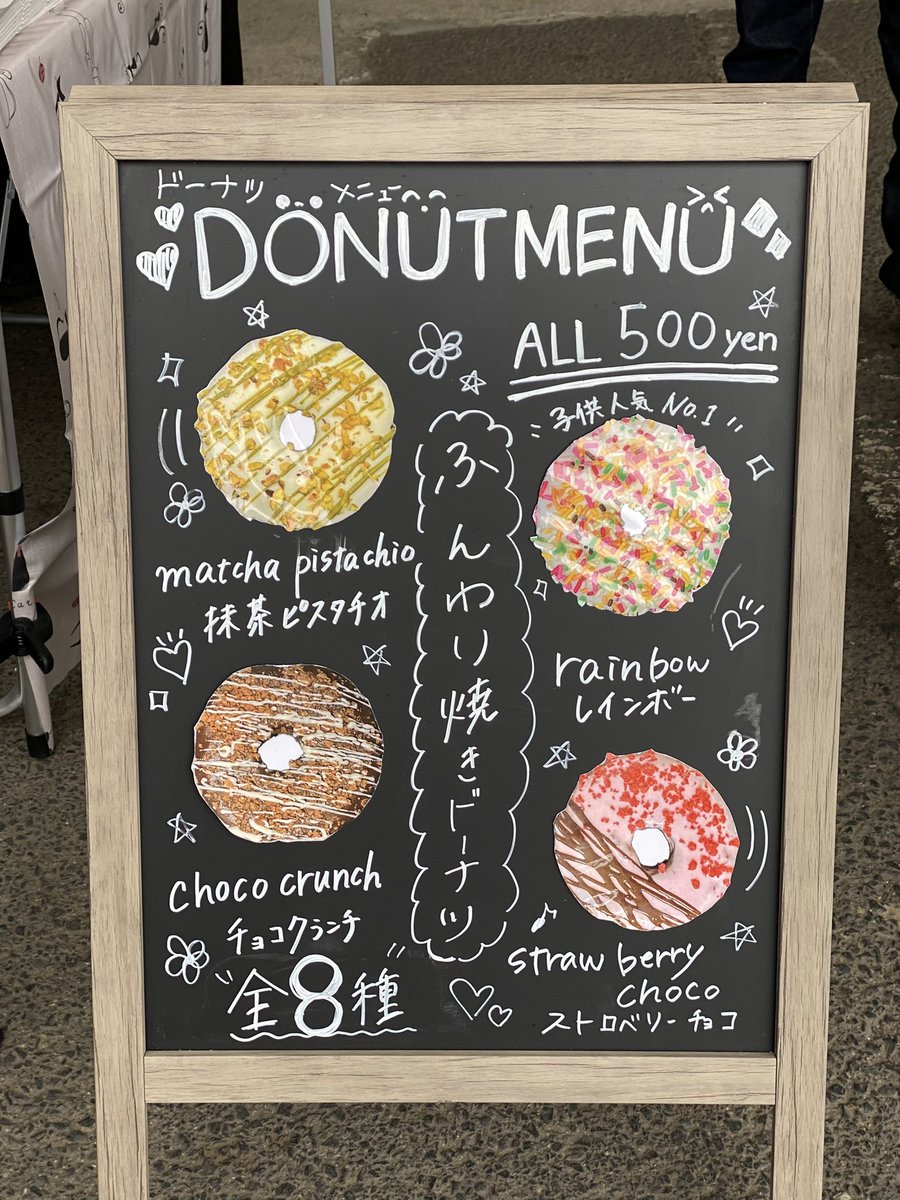 ドーナツ メニュー
DONUT MENU
ALL 500 yen
matcha pistachio
抹茶ピスタチオ
子供人気 No.1
rainbow
レインボー
ふんわり焼きドーナツ
choco crunch
チョコクランチ
strawberry
choco
ストロベリーチョコ
全8種